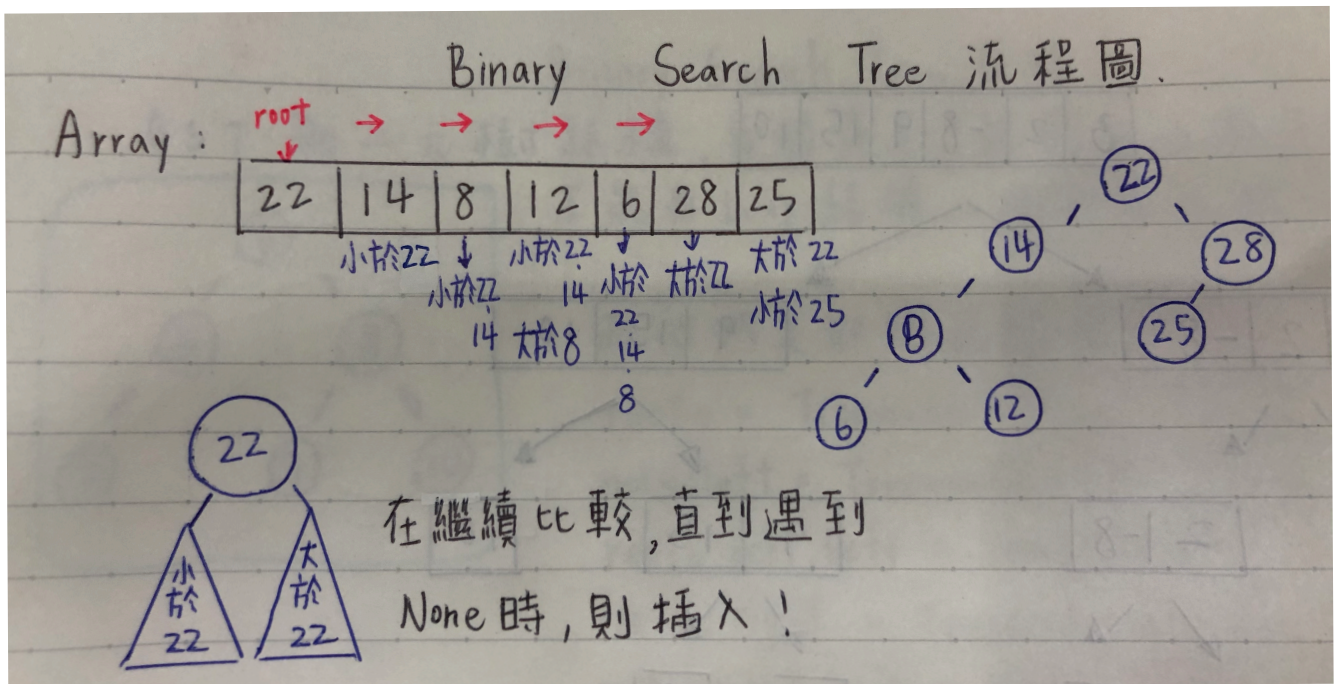 Binary Search Tree 流程圖.
Array :
root
→ → → →
22 14 8 12 6 28 25
小於22
小於22.
14
小於22.
14
大於8
小於
22
.
14
.
8
大於22
大於22
小於25
22
14
28
8
25
6
12
22
小於22
大於22
在繼續比較,直到遇到
None時,則插入!